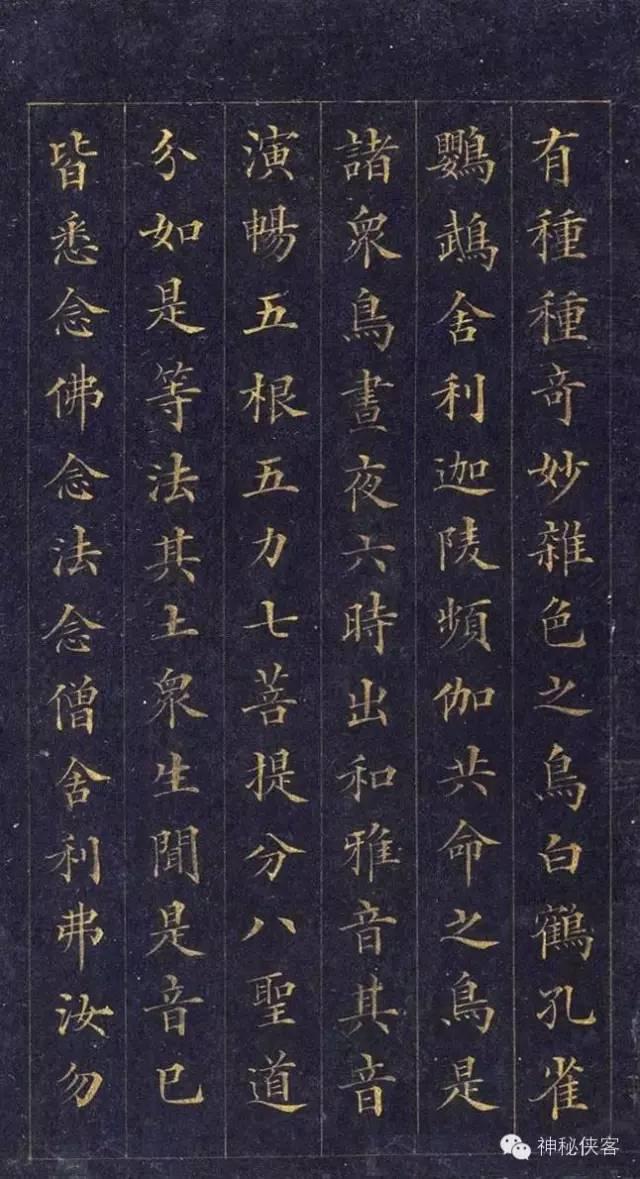 有種種奇妙雜色之鳥白鶴孔雀
鸚鵡舍利迦陵頻伽共命之鳥是
諸衆鳥晝夜六時出和雅音其音
演暢五根五力七菩提分八聖道
分如是等法其土衆生聞是音已
皆悉念佛念法念僧舍利弗汝勿
神秘侠客